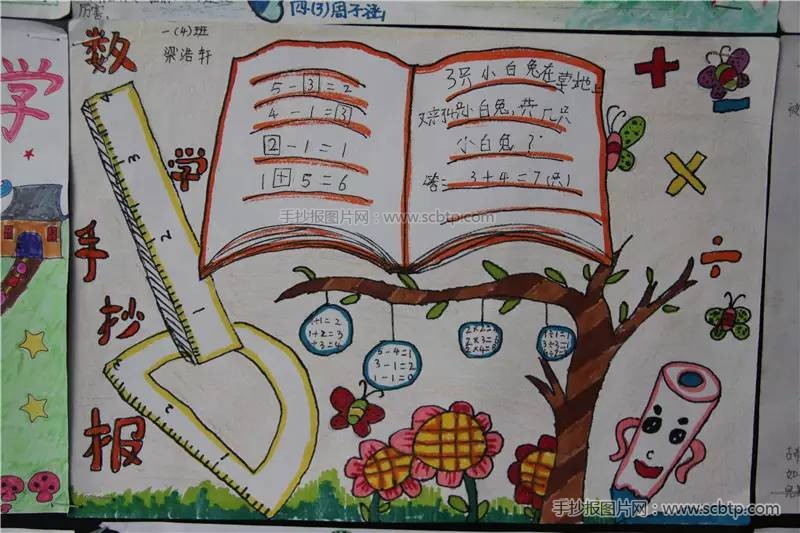 厉害
四(3)周不涵
一(4)班
梁浩轩
数学手抄报
学
5-3=2
4-1=3
2-1=1
1+5=6
3只小白兔在草地上
又来4只小白兔,共几只
小白兔?
答:3+4=7(只)
手抄报图片网:www.scbtp.com
1+1=2
1+2=3
1+3=4
5-4=1
3-1=2
1-1=0
2×2=4
2×3=6
2×4=8
3
2
1
+
-
×
÷
手抄报图片网:www.scbtp.com